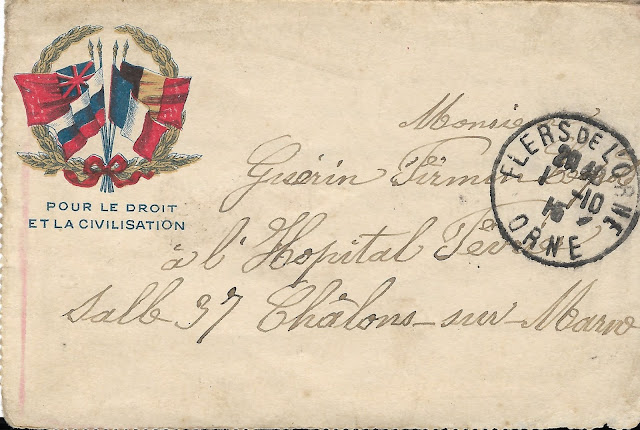 POUR LE DROIT
ET LA CIVILISATION
Monsieur
Guérin Firmin
à l'Hopital
Salle 37 Châlons-sur-Marne
FLERS DE L'ORNE
ORNE